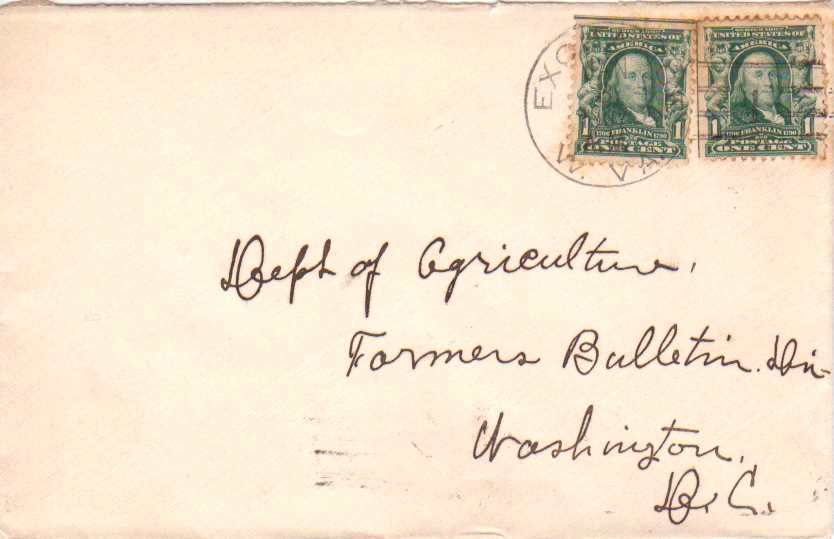 SERIES 1902 SERIES 1902
UNITED STATES OF AMERICA UNITED STATES OF AMERICA
1 1706 FRANKLIN 1790 1 1 1706 FRANKLIN 1790 1
POSTAGE POSTAGE
ONE CENT ONE CENT
W. VA.
Dept of Agriculture,
Farmers Bulletin. Div-
Washington,
D.C.